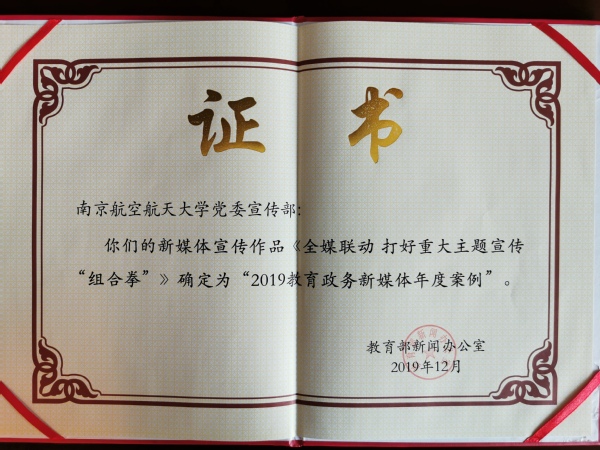 证 书
南京航空航天大学党委宣传部：
你们的新媒体宣传作品《全媒联动 打好重大主题宣传
“组合拳”》确定为“2019教育政务新媒体年度案例”。
教育部新闻办公室
2019年12月